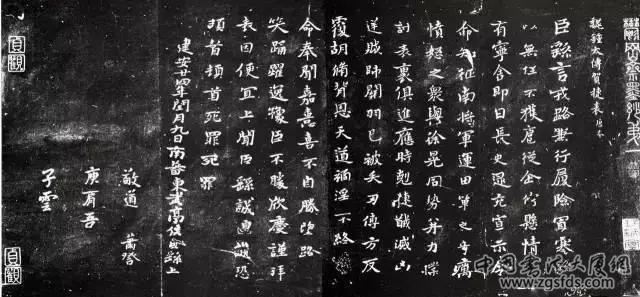 魏鍾太傅賀捷表
臣繇言戎路兼行履險冒寒
以無任不獲扈從企佇懸情
有寧舍即日長史逯充宣示令
命知征南將軍運田單之奇厲
憤怒之眾與徐晃同勢并力撲
討表裏俱進應時剋捷馘滅凶
逆賊帥關羽已被矢刃傅方反
覆胡脩背恩天道禍淫不終
命奉聞嘉憙喜不自勝望路
笑踊躍逸豫臣不勝欣慶謹拜
表因便宜上聞臣繇誠惶誠恐
頓首頓首死罪死罪
建安廿四年閏月九日南蕃東武亭侯臣繇上
敬道
庾肩吾
子雲
貞觀
貞觀
中国书法大展网
www.zgsfds.com